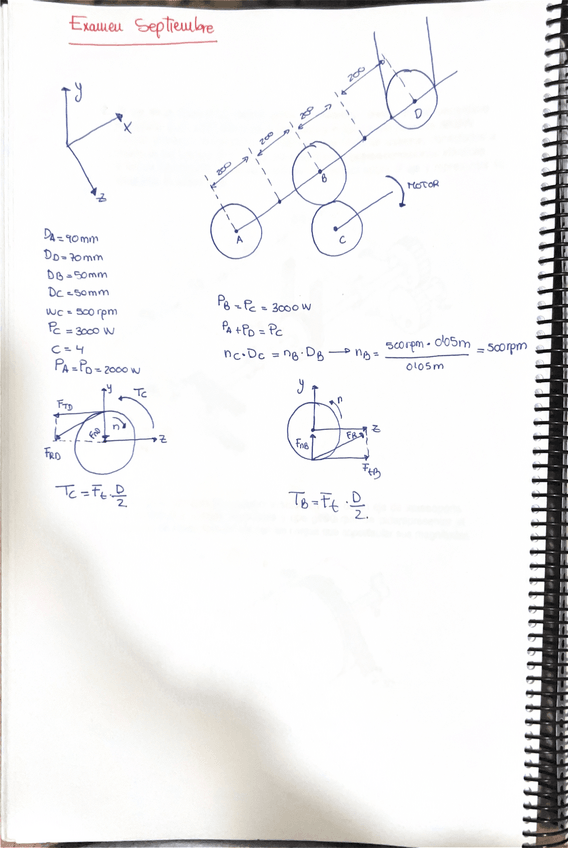 Examen Septiembre
y
x
z
200
200
200
200
A
B
C
D
MOTOR
DA = 90mm
DD = 70mm
DB = 50mm
DC = 50mm
wc = 500rpm
Pc = 3000 W
C = 4
PA = PD = 2000 W
PB = PC = 3000 W
PA + PD = PC
nc · Dc = nB · DB → nB = 500rpm · 0'05m / 0'05m = 500rpm
y
Tc
FTD
FnD
n
z
FRD
Tc = Ft · D/2
y
n
z
FnB
FB
FtB
TB = Ft · D/2.